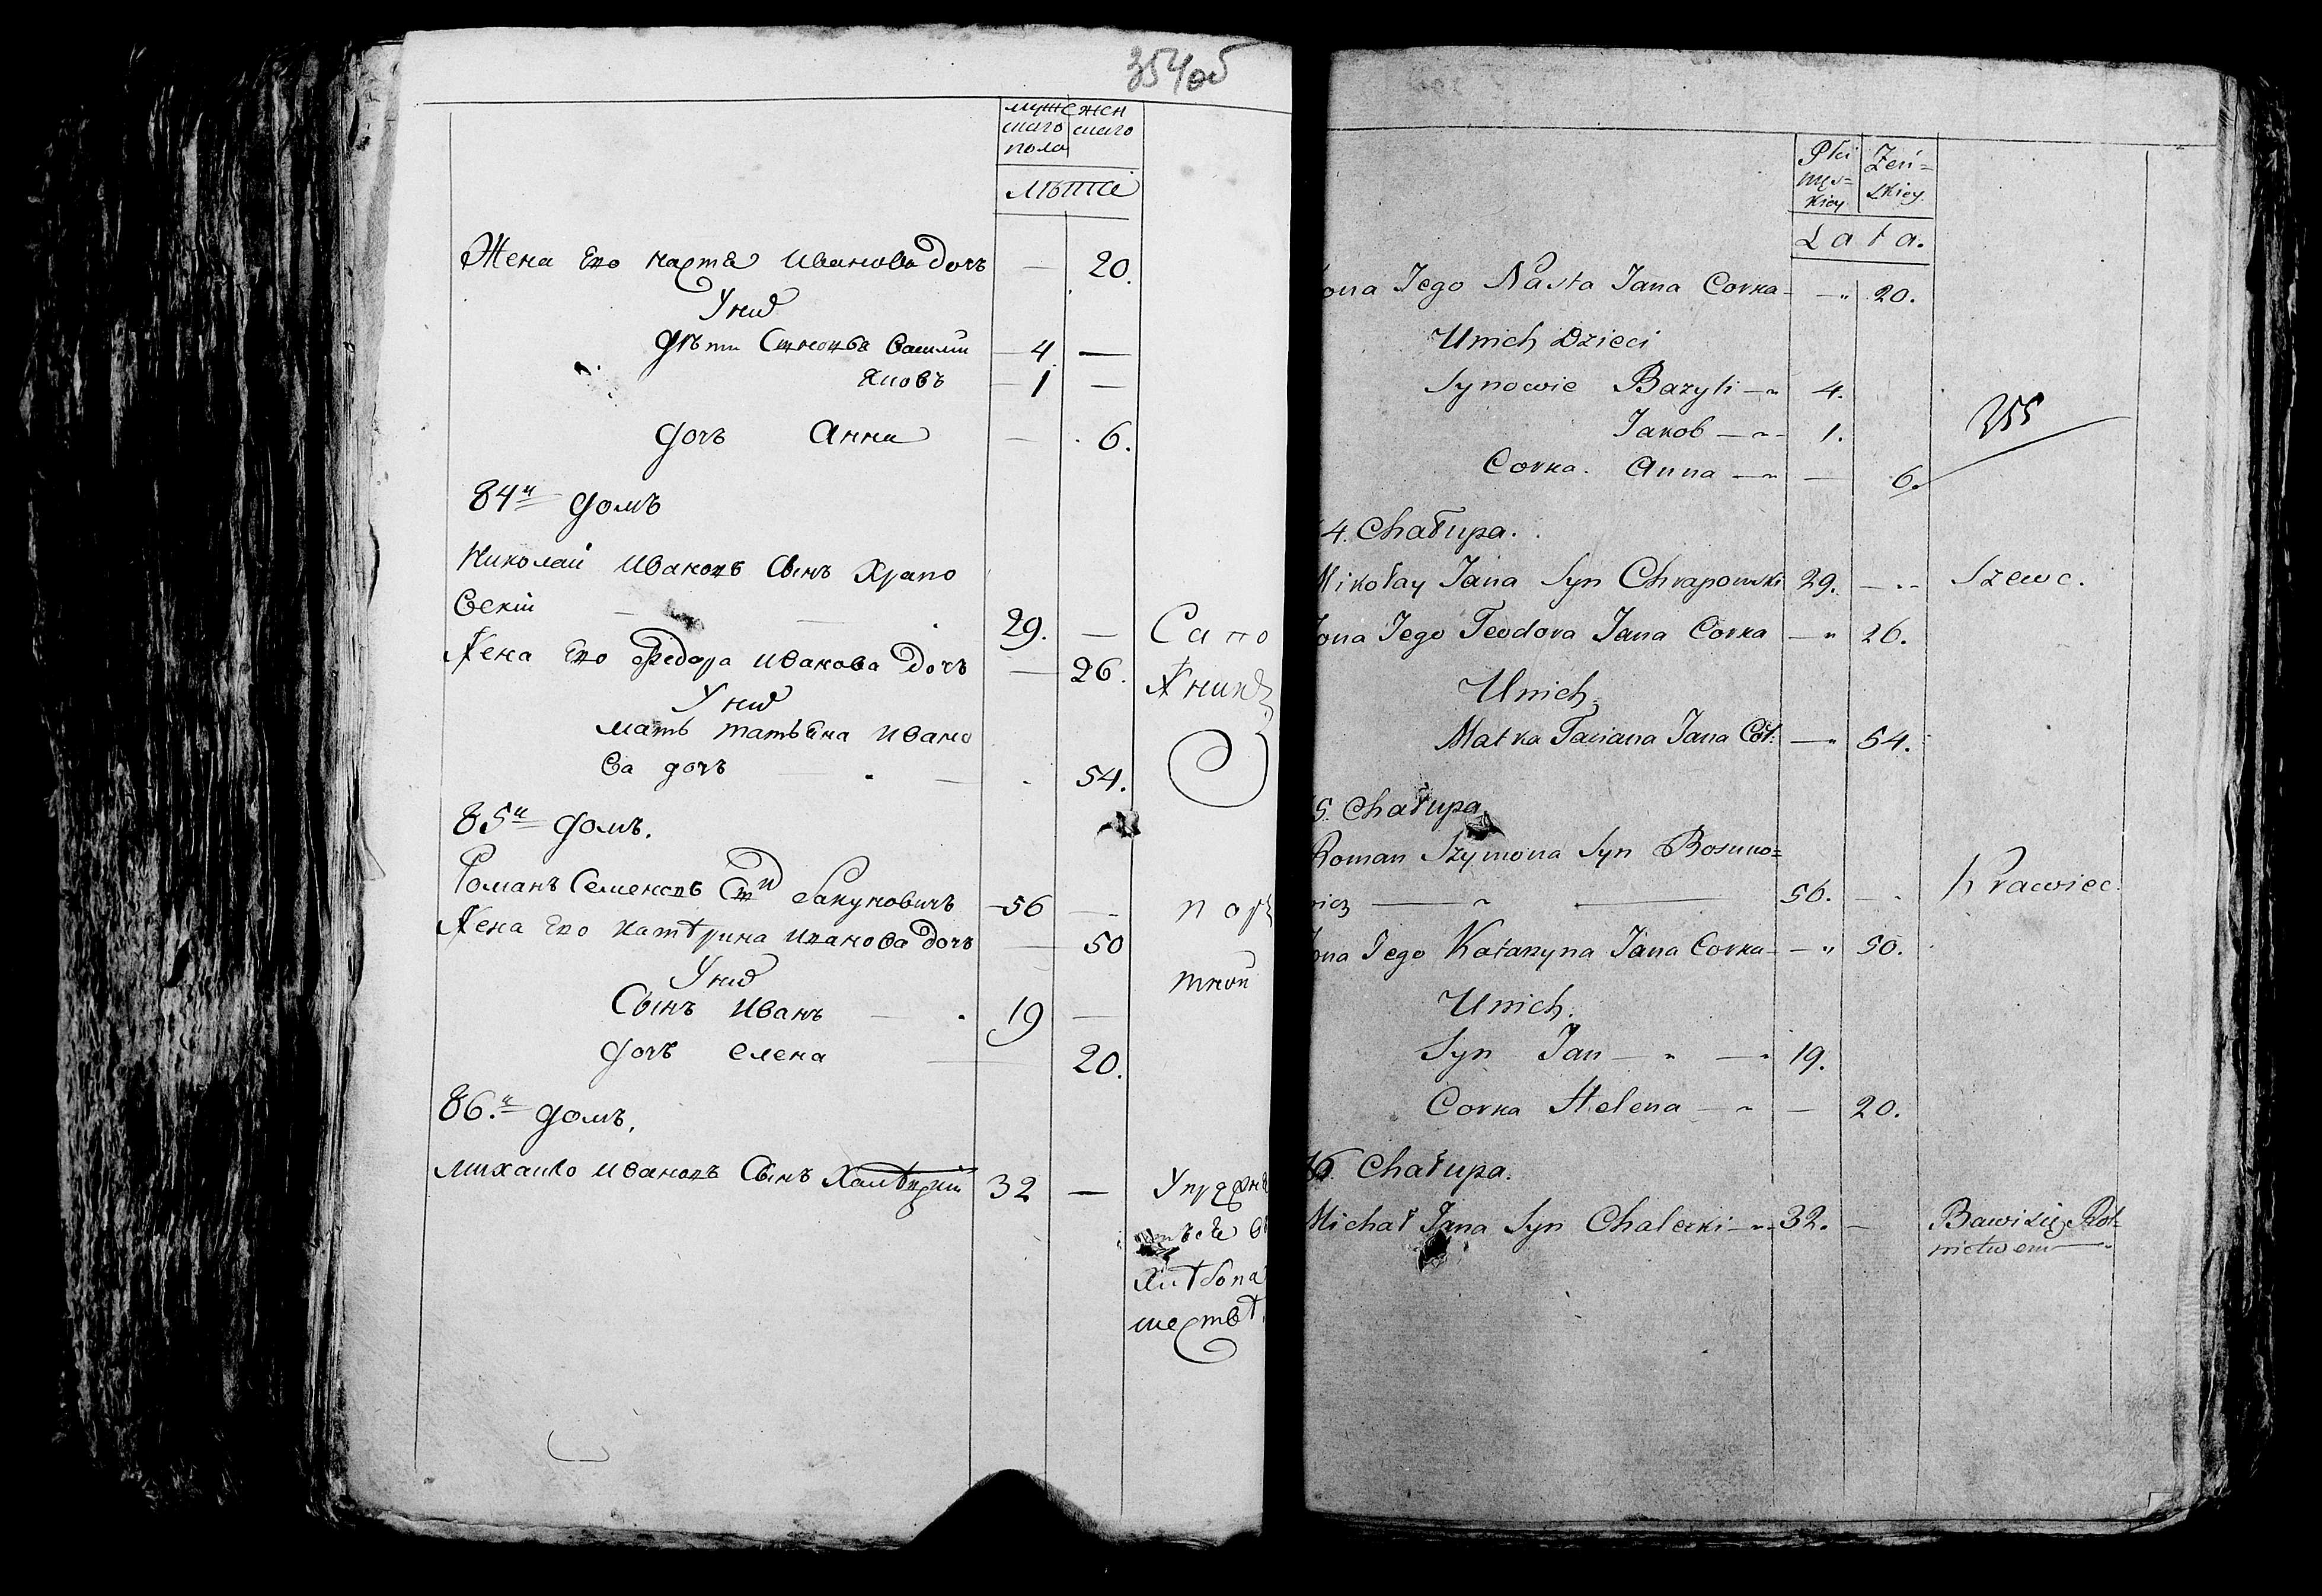 354об
муже жен
скаго скаго
пола
лѣта
Жена Его Наста Иванова дочь — 20.
У них
Дѣти Сыновья Василий 4 —
Яковъ 1 —
дочь Анна — 6.
84й домъ
Николай Ивановъ Сынъ Храпо
вский 29. — Сапо
Жена Его Федора Иванова Дочь — 26. жникъ
У них
мать татьяна Ивано
ва дочь — 54.
85й домъ.
Романъ Семеновъ 56 —
Жена Его Катерина Иванова дочь — 50
У них тной
Сынъ Иванъ 19 —
дочь елена 20.
86.й домъ.
Михайло Ивановъ Сынъ 32 —
Хлѣбопа
шествѣ.
Płci Żeń=
męs= skiey
kiey
Lata.
ona Jego Nasta Jana Corka — 20.
U nich Dzieci
Synowie Bazyli — 4.
Jakob — 1.
Corka. Anna — — 6.
4. Chałupa.
Mikołay Jana Syn Chrapowski 29. — Szewc.
ona Jego Teodora Jana Corka — 26.
U nich
Matka Taciana Jana Cór: — 54.
5. Chałupa
Roman Szymona Syn
wicz — 56. — Krawiec.
ona Jego Katarzyna Jana Corka — 50.
U nich.
Syn Jan — 19.
Corka Helena — — 20.
6. Chałupa.
Michał Jana Syn Chalecki — 32. — Bawi się Rol=
nictwem